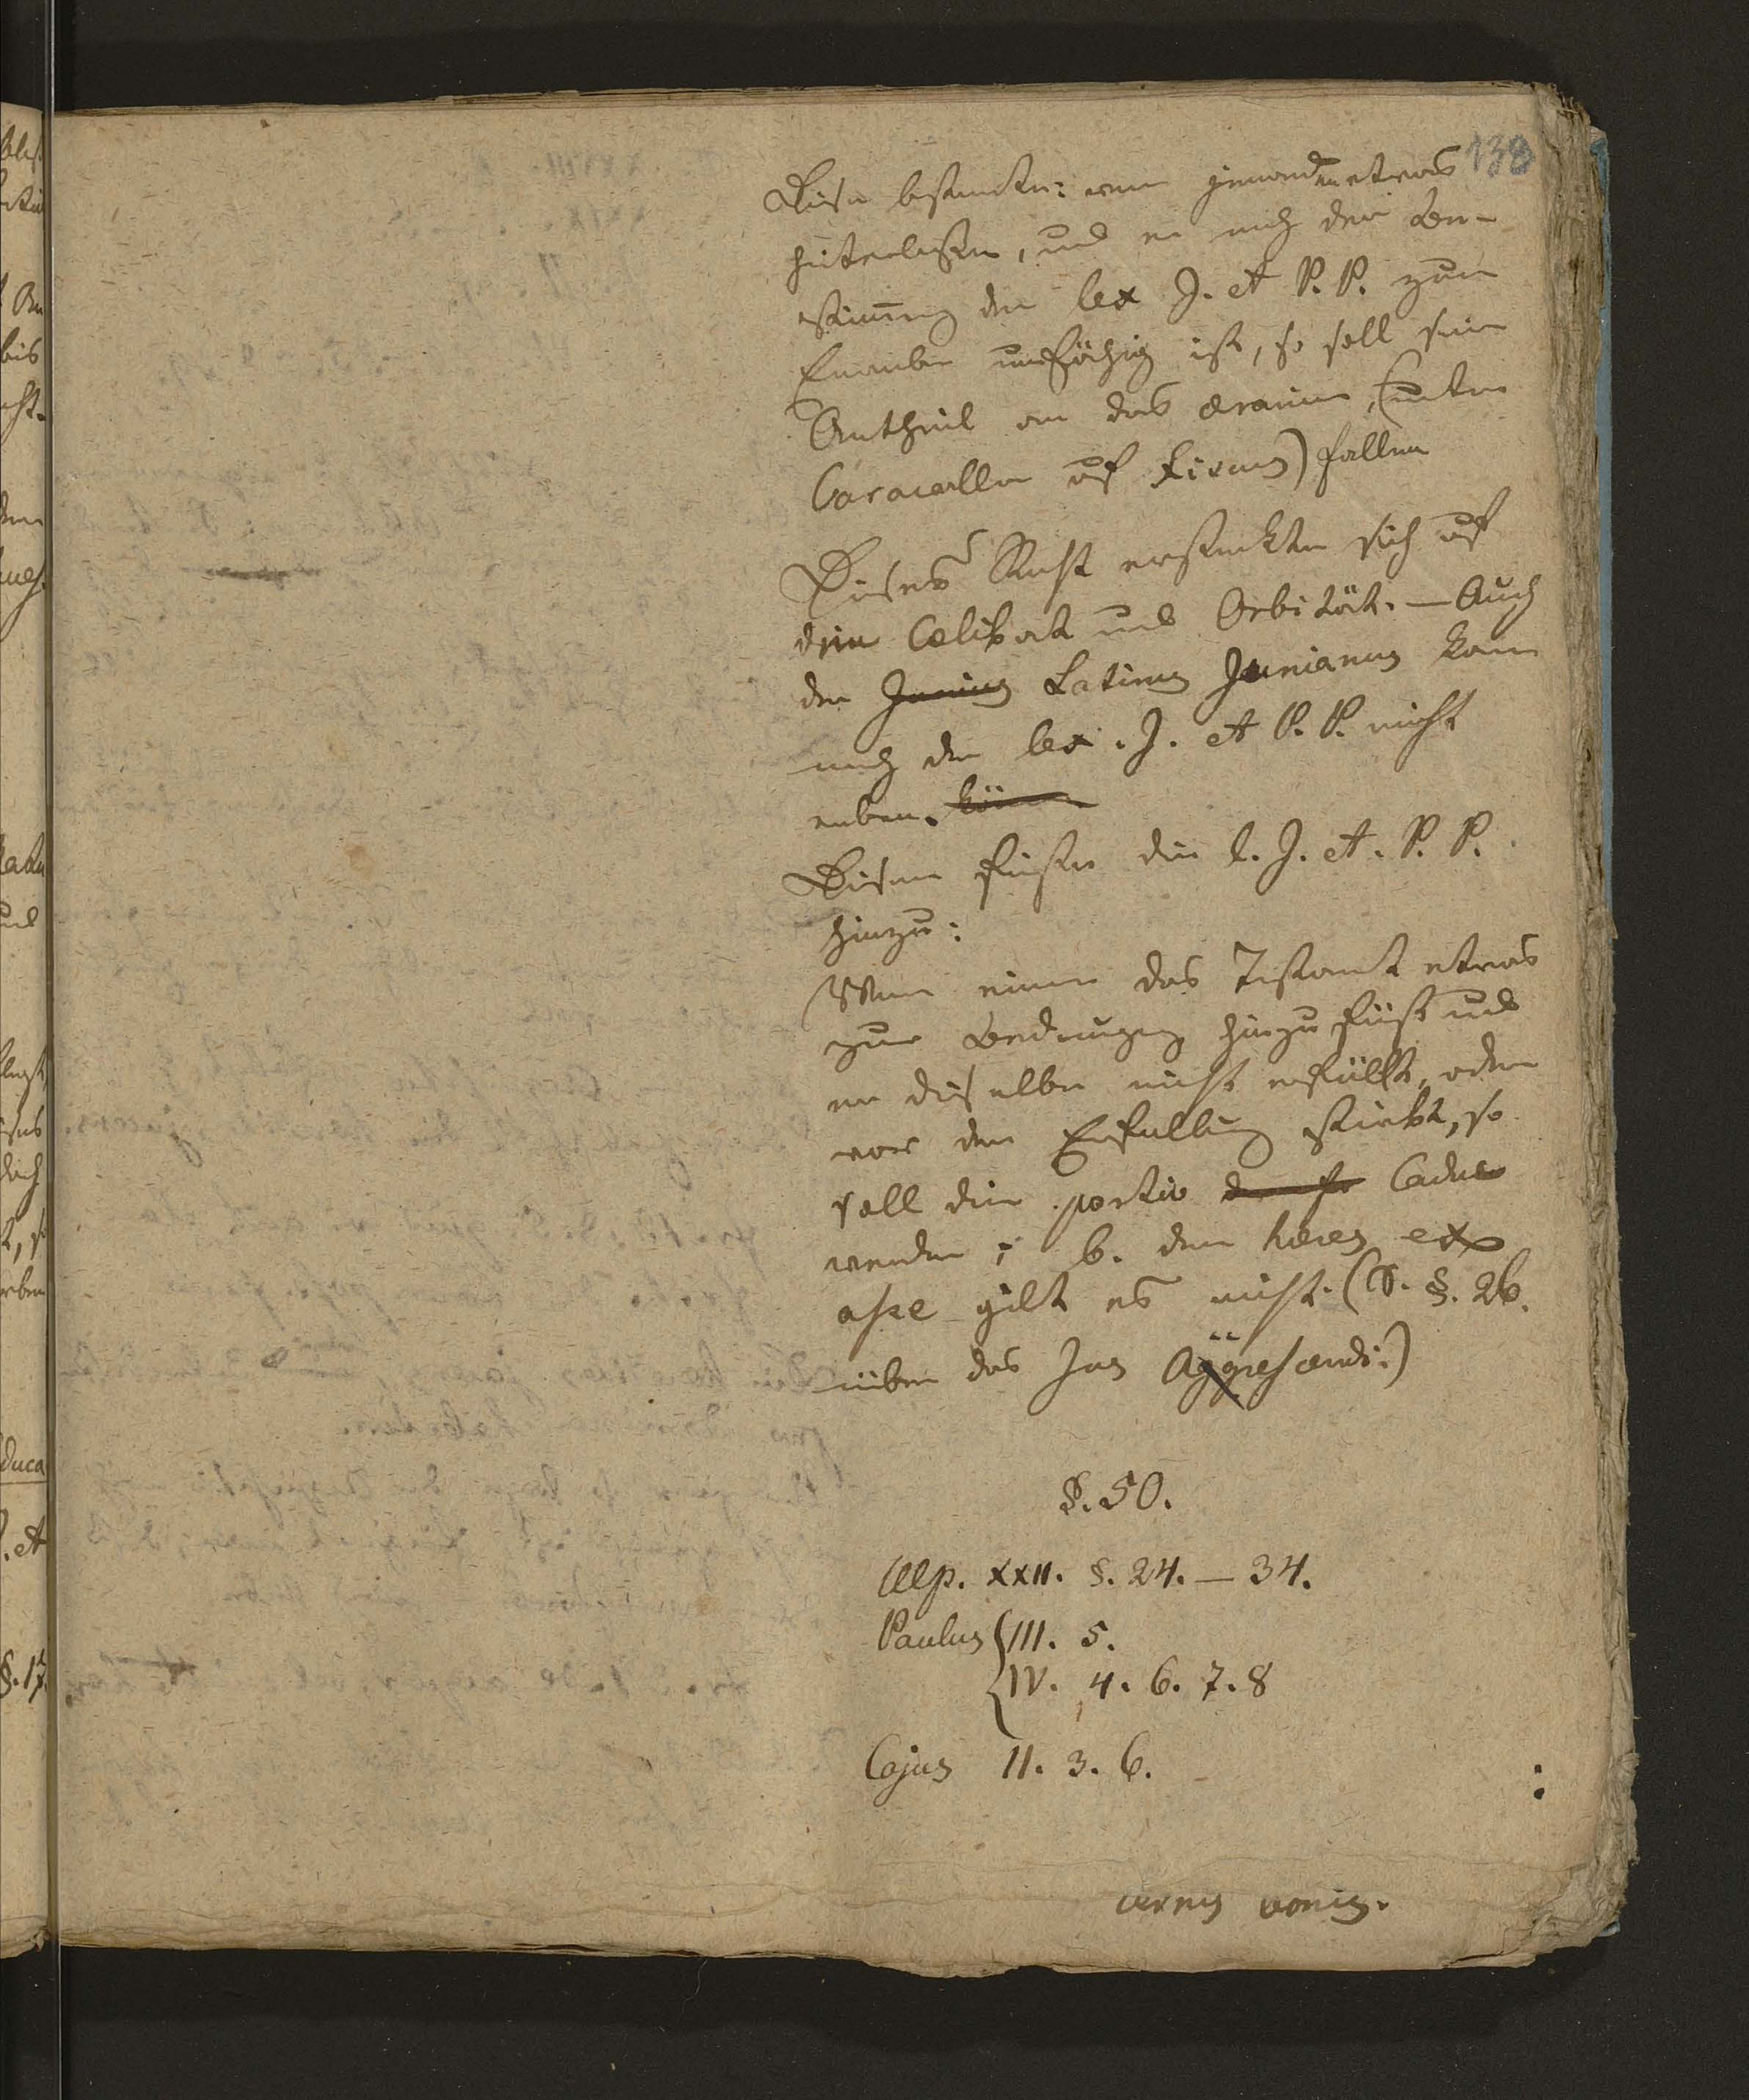 138
Diese bestimte: wenn jemandem etwas
hinterlaßen, und er nach der Be-
stimung der lex J. et P. P. zum
Erwerben unfähig ist, so soll sein
Antheil an das ærarium, (unter
Caracalla auf Fiscus) fallen
Dieses Recht erstrekte sich auf
den Cœlibat und Orbität. — Auch
der Junius Latinus Junianus kan
nach der lex. J. et P. P. nicht
erben.
Diesem fügte die l. J. et. P. P.
hinzu:
Wenn einer das Testamt etwas
zur Bedingung hinzu fügt und
er dieselbe nicht erfüllt, oder
vor der Erfüllung stirbt, so
soll die portio Caduc
werden; b. dem heres ex
asse gilt es nicht. (S. §. 26.
über das Jus Aggrescendi.)
§. 50.
Ulp. XXII. §. 24. — 34.
Paulus III. 5.
IV. 4. 6. 7. 8
Cajus II. 3. 6.